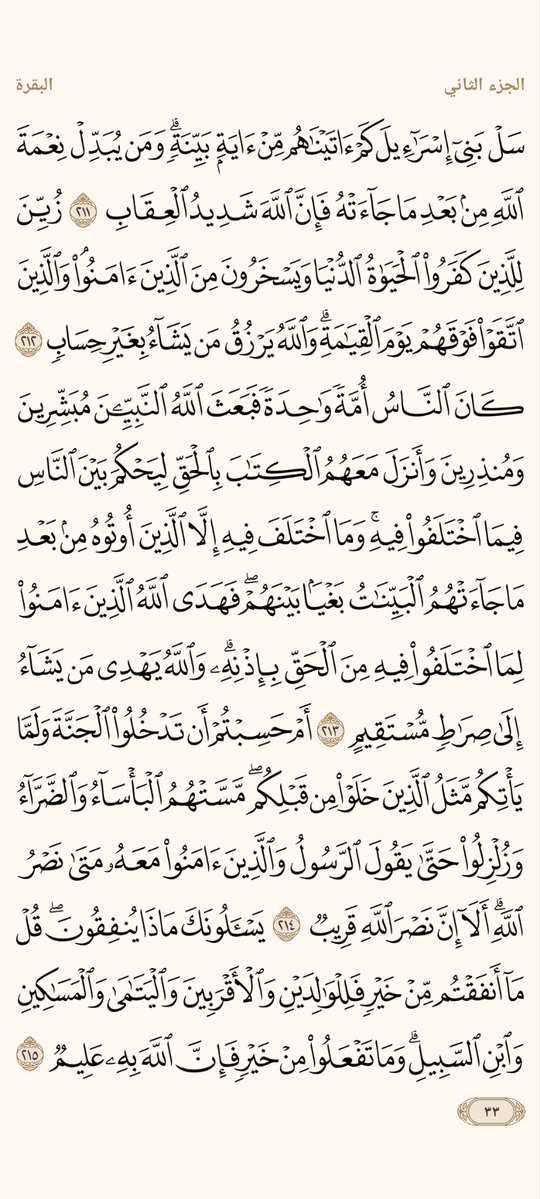 الجزء الثاني البقرة
سَلۡ بَنِيٓ إِسۡرَٰٓءِيلَ كَمۡ ءَاتَيۡنَٰهُم مِّنۡ ءَايَةِۭ بَيِّنَةٖۗ وَمَن يُبَدِّلۡ نِعۡمَةَ
ٱللَّهِ مِنۢ بَعۡدِ مَا جَآءَتۡهُ فَإِنَّ ٱللَّهَ شَدِيدُ ٱلۡعِقَابِ ٢١١ زُيِّنَ
لِلَّذِينَ كَفَرُواْ ٱلۡحَيَوٰةُ ٱلدُّنۡيَا وَيَسۡخَرُونَ مِنَ ٱلَّذِينَ ءَامَنُواْۘ وَٱلَّذِينَ
ٱتَّقَوۡاْ فَوۡقَهُمۡ يَوۡمَ ٱلۡقِيَٰمَةِۗ وَٱللَّهُ يَرۡزُقُ مَن يَشَآءُ بِغَيۡرِ حِسَابٖ ٢١٢
كَانَ ٱلنَّاسُ أُمَّةٗ وَٰحِدَةٗ فَبَعَثَ ٱللَّهُ ٱلنَّبِيِّـۧنَ مُبَشِّرِينَ
وَمُنذِرِينَ وَأَنزَلَ مَعَهُمُ ٱلۡكِتَٰبَ بِٱلۡحَقِّ لِيَحۡكُمَ بَيۡنَ ٱلنَّاسِ
فِيمَا ٱخۡتَلَفُواْ فِيهِۚ وَمَا ٱخۡتَلَفَ فِيهِ إِلَّا ٱلَّذِينَ أُوتُوهُ مِنۢ بَعۡدِ
مَا جَآءَتۡهُمُ ٱلۡبَيِّنَٰتُ بَغۡيَۢا بَيۡنَهُمۡۖ فَهَدَى ٱللَّهُ ٱلَّذِينَ ءَامَنُواْ
لِمَا ٱخۡتَلَفُواْ فِيهِ مِنَ ٱلۡحَقِّ بِإِذۡنِهِۦۗ وَٱللَّهُ يَهۡدِي مَن يَشَآءُ
إِلَىٰ صِرَٰطٖ مُّسۡتَقِيمٍ ٢١٣ أَمۡ حَسِبۡتُمۡ أَن تَدۡخُلُواْ ٱلۡجَنَّةَ وَلَمَّا
يَأۡتِكُم مَّثَلُ ٱلَّذِينَ خَلَوۡاْ مِن قَبۡلِكُمۖ مَّسَّتۡهُمُ ٱلۡبَأۡسَآءُ وَٱلضَّرَّآءُ
وَزُلۡزِلُواْ حَتَّىٰ يَقُولَ ٱلرَّسُولُ وَٱلَّذِينَ ءَامَنُواْ مَعَهُۥ مَتَىٰ نَصۡرُ
ٱللَّهِۗ أَلَآ إِنَّ نَصۡرَ ٱللَّهِ قَرِيبٞ ٢١٤ يَسۡـَٔلُونَكَ مَاذَا يُنفِقُونَۖ قُلۡ
مَآ أَنفَقۡتُم مِّنۡ خَيۡرٖ فَلِلۡوَٰلِدَيۡنِ وَٱلۡأَقۡرَبِينَ وَٱلۡيَتَٰمَىٰ وَٱلۡمَسَٰكِينِ
وَٱبۡنِ ٱلسَّبِيلِۗ وَمَا تَفۡعَلُواْ مِنۡ خَيۡرٖ فَإِنَّ ٱللَّهَ بِهِۦ عَلِيمٞ ٢١٥
٣٣